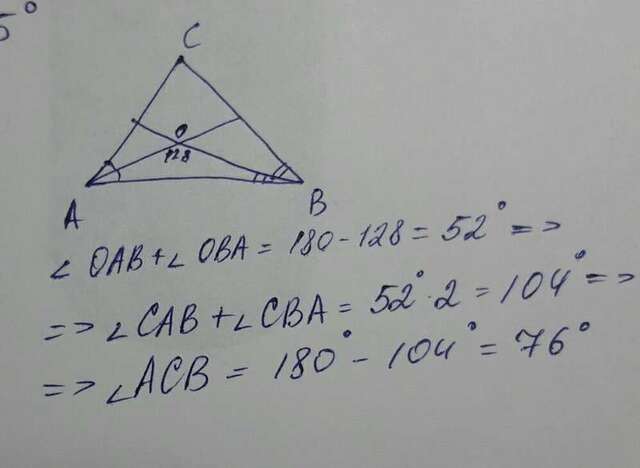 5°
C
O
128
A
B
∠OAB+∠OBA = 180-128 = 52° =>
=> ∠CAB + ∠CBA = 52°·2 = 104° =>
=> ∠ACB = 180° - 104° = 76°